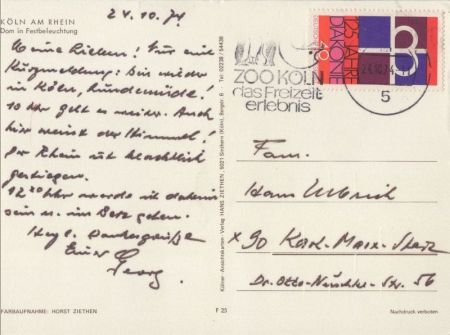 KÖLN AM RHEIN
Dom in Festbeleuchtung
24.10.74
Meine Lieben! Für eine
Kurzmeldung: Bin wieder
in Köln, hundemüde!
10 Uhr geht es weiter. Auch
hier weint der Himmel!
Der Rhein ist beachtlich
gestiegen.
12 20 Uhr werde ich daheim
sein u. ins Bett gehen.
Herzl.
Euer
Georg
FARBAUFNAHME: HORST ZIETHEN
F 25
Kölner Ansichtskarten - Verlag HANS ZIETHEN, 5021 Sinthern (Köln), Bergstr. 6 Tel. 02238 / 54438
ZOO KÖLN
das Freizeit
erlebnis
125 JAHRE
DIAKONIE
40
24.10.74
5
Fam.
Hans Ulbrich
x 90 Karl-Marx-Stadt
Dr.-Otto-Nuschke-Str. 56
Nachdruck verboten